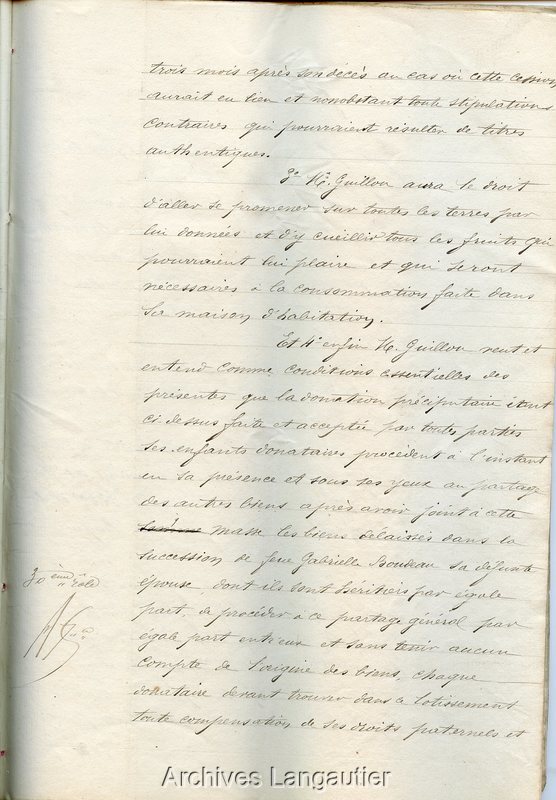 trois mois après son décès au cas où cette cession
aurait eu lieu et nonobstant toute stipulations
contraires qui pourraient résulter de titres
authentiques.
3° M. Guillou aura le droit
d'aller se promener sur toutes les terres par
lui données et d'y cueillir tous les fruits qui
pourraient lui plaire et qui seront
nécessaires à la consommation faite dans
sa maison d'habitation.
Et 4° enfin M. Guillou veut et
entend comme conditions essentielles des
présentes que la donation préciputaire étant
ci dessus faite et acceptée par toutes parties
ses enfants donataires procèdent à l'instant
en sa présence et sous ses yeux au partage
des autres biens après avoir joint à cette
masse les biens délaissés dans la
succession de feue Gabrielle sa défunte
épouse, dont ils sont héritiers par égale
part, de procéder à ce partage général par
égale part entr'eux et sans tenir aucun
compte de l'origine des biens, chaque
donataire devant trouver dans ce lotissement
toute compensation de ses droits paternels et
30ème rôle
Archives Langautier